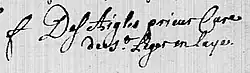 f Des Aigles prieur Curé
de St. Leger en laye.